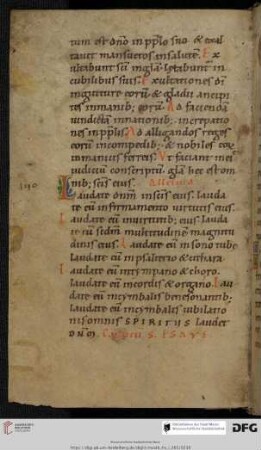 tum est dño inpplo suo & exal
tauit mansuetos insalute. Ex
ultabunt sc̄i inglā l&abunt in
cubilibus suis. Exultationes dī
ingutture eorū & gladii ancipi
tes inmanib; eorū. Ad faciendā
uindictā innationib; increpatio
nes inpplis. Ad alligandos reges
eorū incompedib; & nobiles eor̄
inmanicis ferreis. Ut faciant ineis
iudiciū conscriptū. glā hec est om
nib; sc̄is eius. Alleluia.
Laudate dnm insc̄is eius. lauda
te eū infirmamento uirtutis eius.
Laudate eū inuirtutib; eius. lauda
te eū scdm̄ multitudinē magnitu
dinis eius. Laudate eū insono tubę
laudate eū inpsalterio & cithara.
Laudate eū intympano & choro.
laudate eū incordis & organo. Lau
date eū incymbalis benesonantib;
laudate eū incymbalis iubilatio
nis omnis SPIRITUS laudet
dnm.